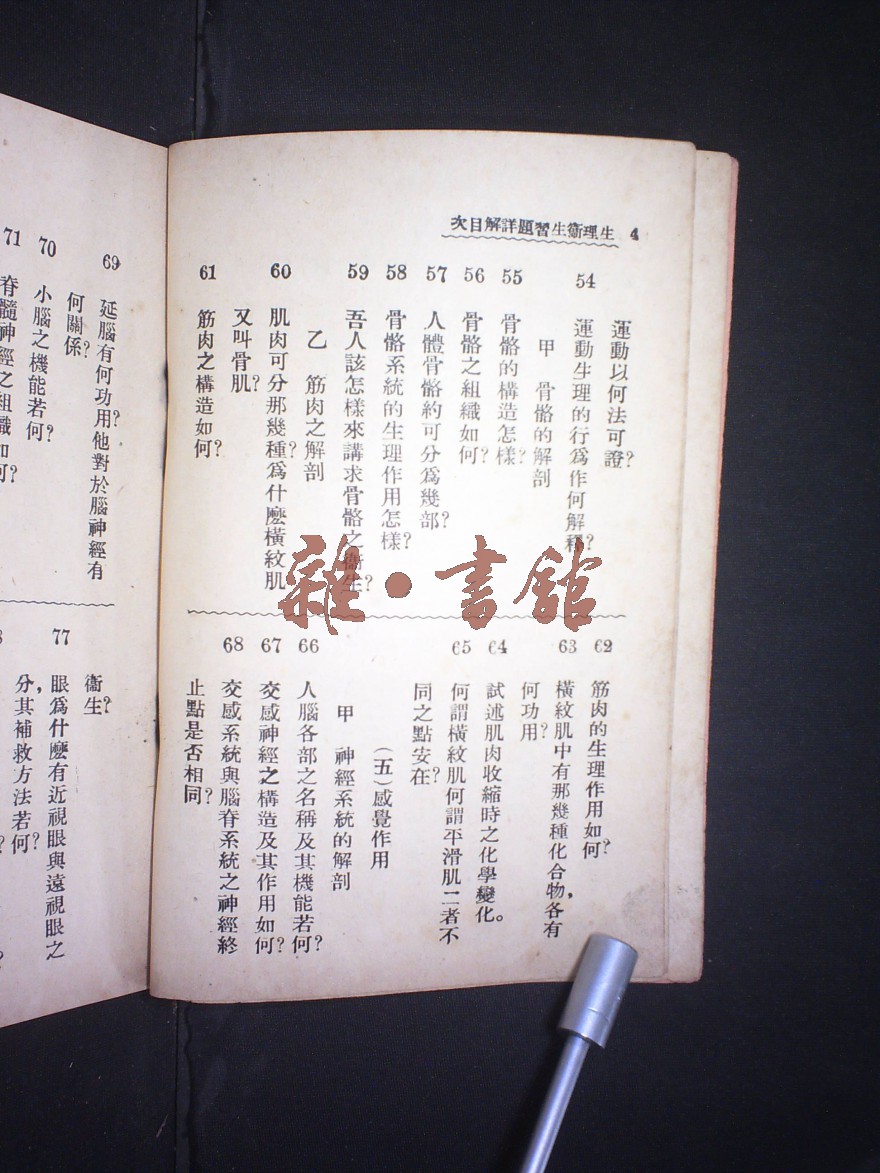 4 生理衞生習題詳解目次
運動以何法可證?
54 運動生理的行爲作何解釋?
甲 骨骼的解剖
55 骨骼的構造怎樣?
56 骨骼之組織如何?
57 人體骨骼約可分爲幾部?
58 骨骼系統的生理作用怎樣?
59 吾人該怎樣來講求骨骼之衞生?
乙 筋肉之解剖
60 肌肉可分那幾種?爲什麽橫紋肌
又叫骨肌?
61 筋肉之構造如何?
62 筋肉的生理作用如何?
63 橫紋肌中有那幾種化合物,各有
何功用?
64 試述肌肉收縮時之化學變化。
65 何謂橫紋肌何謂平滑肌二者不
同之點安在?
(五)感覺作用
甲 神經系統的解剖
66 人腦各部之名稱及其機能若何?
67 交感神經之構造及其作用如何?
68 交感系統與腦脊系統之神經終
止點是否相同?
69 延腦有何功用?他對於腦神經有
何關係?
70 小腦之機能若何?
71 脊髓神經之組織如何?
衞生?
77 眼爲什麽有近視眼與遠視眼之
分,其補救方法若何?
雜·書館